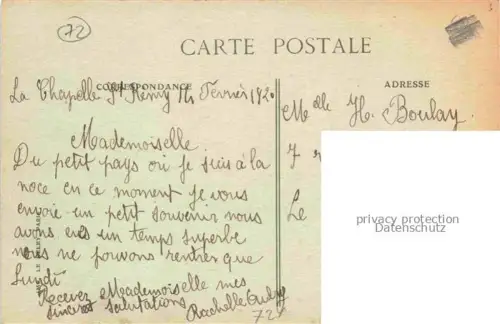 72
CARTE POSTALE
CORRESPONDANCE
ADRESSE
La Chapelle St Remy 14 Février 192
Mademoiselle.
Du petit pays où je suis à la
noce en ce moment je vous
envoie un petit souvenir nous
avons eus un temps superbe
nous ne pouvons rentrer que
Lundi
Recevez Mademoiselle mes
sincères salutations
Rachelle
72
Melle H. Boulay.
7
Le
privacy protection
Datenschutz